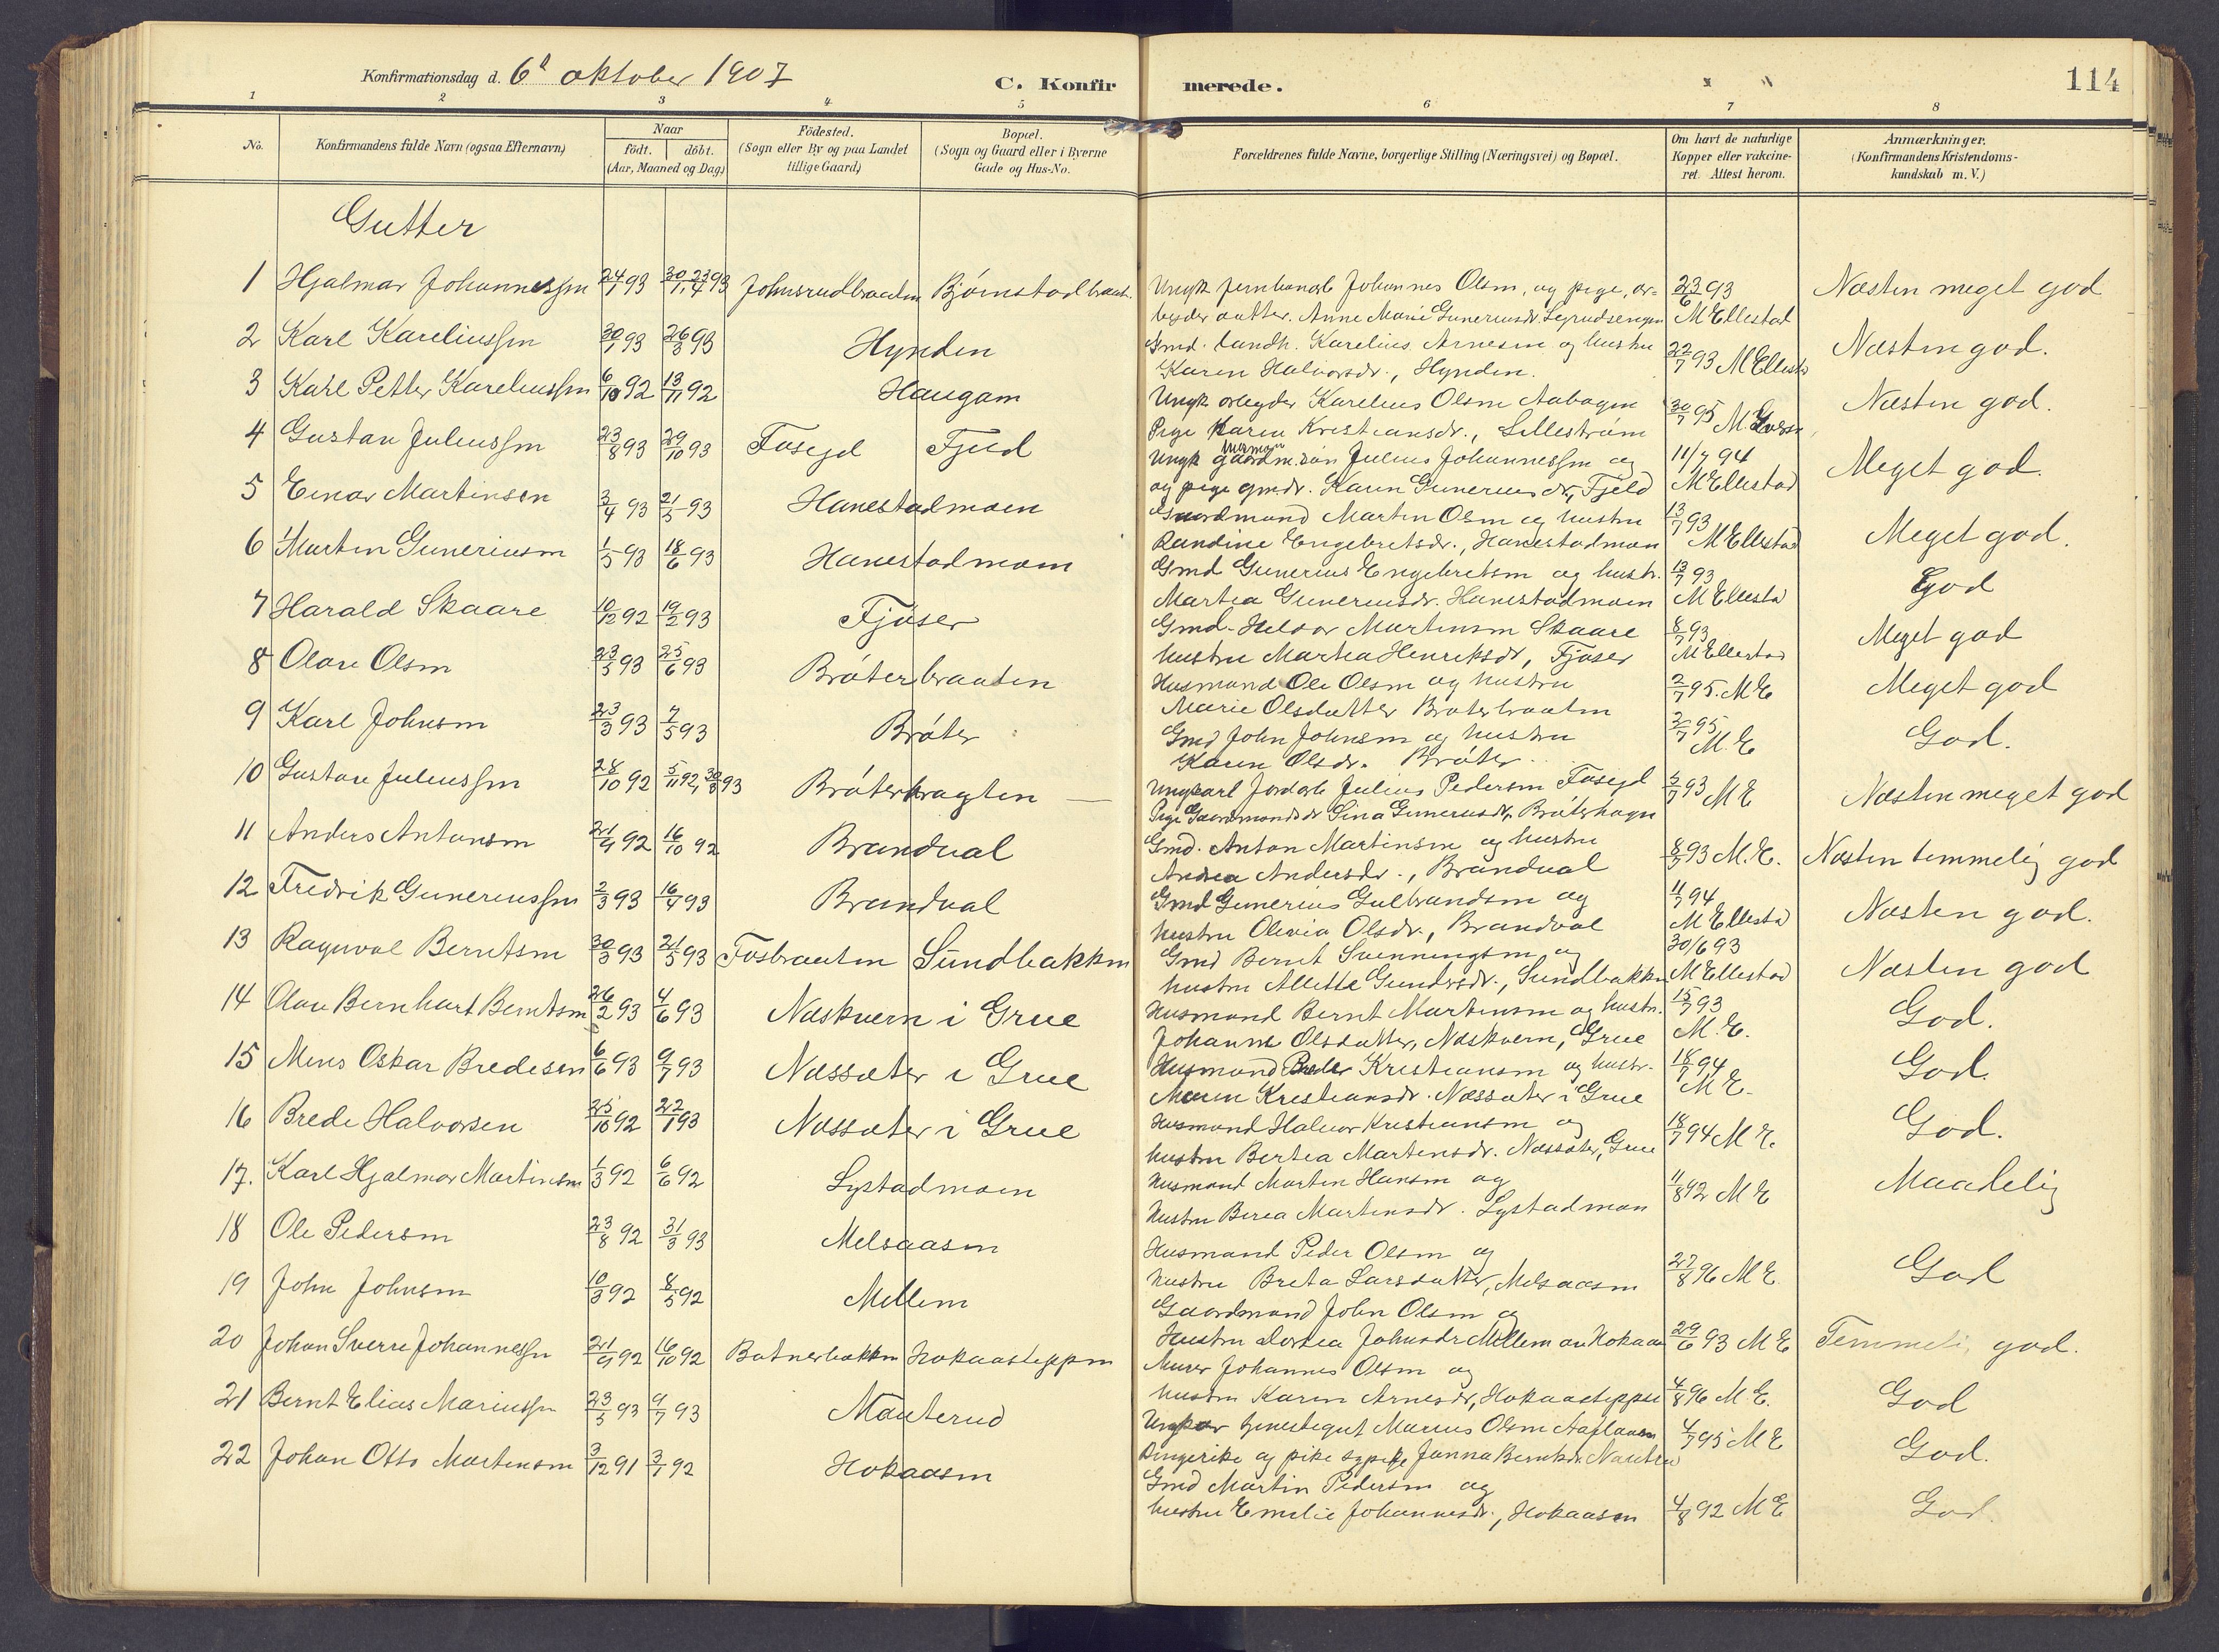 Konfirmationsdag d. 6te oktober 1907
C. Konfirmerede.
114
1 2 3 4 5 6 7 8
No.
Konfirmandens fulde Navn (ogsaa Efternavn)
Naar
födt. döbt.
(Aar, Maaned og Dag)
Födested.
(Sogn eller By og paa Landet
tillige Gaard)
Bopæl.
(Sogn og Gaard eller i Byerne
Gade og Hus-No.
Forældrenes fulde Navne, borgerlige Stilling (Næringsvei) og Bopæl.
Om havt de naturlige
Kopper eller vakcine-
ret. Attest herom.
Anmærkninger.
(Konfirmandens Kristendoms-
kundskab m. V.)
Gutter
1 Hjalmar Johannessen 24/1 93 30/1, 23/4 93 Johnsrudbraaten Bjørnstadbraat. Ungk jernbanearb Johannes Olsen, og pige, ar- 23/6 93 Næsten meget god
beider datter. Anne Marie Guneriusdr. M Ellestad
2 Karl Kareliussen 30/1 93 26/3 93 Hynden Gmd. landh. Karelius Arnesen og hustru 22/7 93 M Ellesta Næsten god.
Karen Halvorsdr., Hynden.
3 Karl Petter Kareliussen 6/10 92 13/11 92 Haugam Ungk arbeyder Karelius Olsen Aabogen 30/7 95 Næsten god.
Pige Karen Kristiansdr., Lillestrøm
4 Gustav Juliussen 23/8 93 29/10 93 Fosegd Fjeld Ungk gaardm.søn Julius Johannessen og 11/7 94 Meget god.
og pige gmdr. Karen Gunerius dr, Fjeld M Ellestad
5 Einar Martinsen 3/4 93 21/5 93 Hanestadmoen Gaardmand Martin Olsen og hustru 13/7 93 Meget god.
Randine Engebretsdr., Hanestadmoen M Ellestad
6 Martin Gunneriusen 1/5 93 18/6 93 Hanestadmoen Gmd Gunerius Engebretsen og hustr. 13/7 93 God
Martea Gunerusdr. Hanestadmoen M Ellesta
7 Harald Skaare 10/12 92 19/2 93 Fjøser Gmd. Halvor Martinsen Skaare 8/7 93 Meget god
hustru Martea Henriksdr, Fjøser M Ellestad
8 Olav Olsen 23/5 93 25/6 93 Brøterbraaten Husmand Ole Olsen og hustru 2/7 95. M E Meget god
Marie Olsdatter Brøterbraaten
9 Karl Johnsen 23/3 93 7/5 93 Brøter Gmd John Johnsen og hustru 2/7 95 God.
Karen Olsdr. Brøter M. E
10 Gustav Juliussen 28/10 92 5/11 92, 30/3 93 Brøterhagen Ungkarl Jordarb Julius Pedersen Fosegd 5/7 93 M E Næsten meget god
Pige Gaardmandsdr Lina Gunerusdr, Brøterhagen
11 Anders Antonsen 21/9 92 16/10 92 Brandval Gmd. Anton Martinsen og hustru 8/7 93 M. E. Næsten temmelig god
Andrea Andersdr., Brandval
12 Fredrik Guneriussen 2/3 93 16/4 93 Brandval Gmd Gunerius Gulbrandsen og 11/7 94 Næsten god.
hustru Olivia Olsdr., Brandval M Ellesta
13 Ragnval Berntsen 30/3 93 21/5 93 Fosbraaten Sundbakken Gmd Bernt Svenningsen og 30/6 93 Næsten god
hustru Alette Gundersdr., Sundbakken M Ellestad
14 Olav Bernhart Berntsen 26/2 93 4/6 93 Næskvern i Grue Husmand Bernt Martinsen og hustr. 15/7 93 God.
Johanne Olsdatter, Næskvern, Grue M. E.
15 Mens Oskar Bredesen 6/6 93 9/7 93 Næssæter i Grue Husmand Brede Kristiansen og hustr. 18/7 94 God.
Maren Kristiansdr. Næssæter i Grue M E.
16 Brede Halvorsen 25/10 92 22/1 93 Næssæter i Grue Husmand Halvor Kristiansen og 18/7 94 M E. God.
hustru Bertea Martinsdr. Næssæter, Grue
17. Karl Hjalmar Martinsen 1/3 92 6/6 92 Lystadmoen Husmand Martin Hansen og 11/8 92 M E Maadelig
hustru Berea Martinsdr. Lystadmoen
18 Ole Pedersen 23/8 92 31/3 93 Melsaasen Husmand Peder Olsen og 27/8 96 M E. God
hustru Breta Larsdatter, Melsaasen
19 John Johnsen 10/3 92 8/5 92 Mellem Gaardmand John Olsen og
Hustru Dortea Johnsdr Mellem av Hokaas 29/6 93 M E Temmeli god.
20 Johan Sverre Johannessen 21/9 92 16/10 92 Botnerbakken Hokaasteppen Murer Johannes Olsen og
hustru Karen Arnesdr, Hokaasteppen 4/8 96 M. E. God
21 Bernt Elias Mariussen 23/5 93 9/7 93 Nauterud Ungkar tjenestegut Marius Olsen 4/7 95 M E God.
Ringerike og pike sypike Janna Berntsdr. Nauteru
22 Johan Otto Martensen 3/12 91 3/1 92 Hokaasen Gmd Martin Pedersen og
hustru Emilie Johannesdr., Hokaasen 4/8 92 M E God.